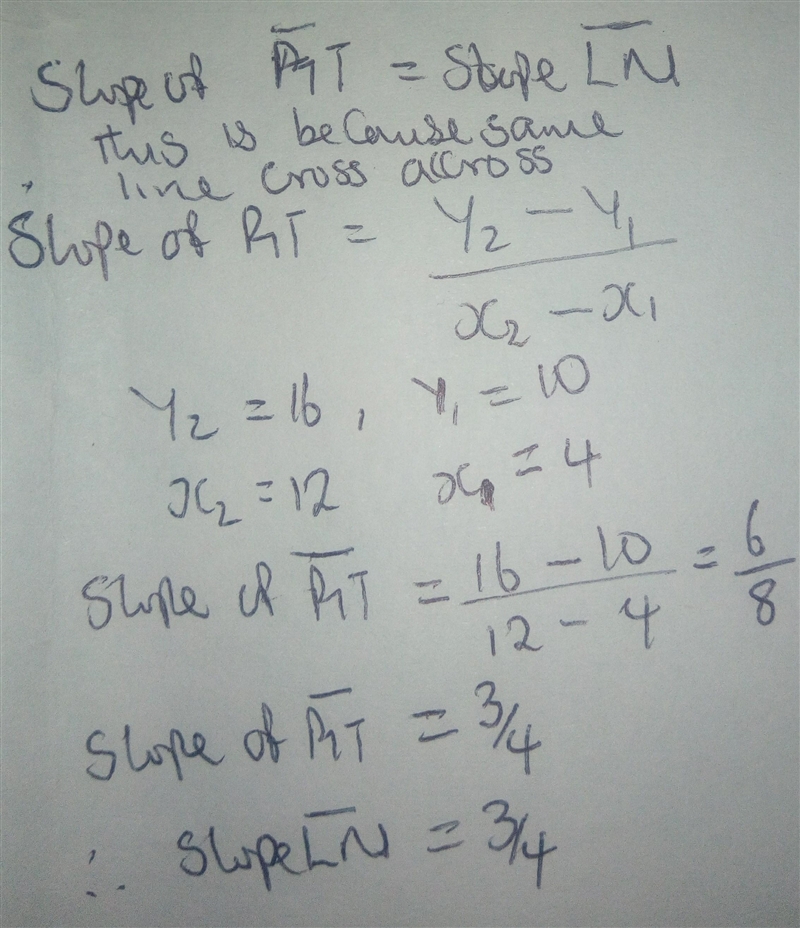 Slope of R̅T̅ = Slope L̅N̅
this is because same
line cross accross
Slope of RT = Y₂ - Y₁ / x₂ - x₁
Y₂ = 16, Y₁ = 10
x₂ = 12 x₁ = 4
Slope of R̅T̅ = 16 - 10 / 12 - 4 = 6/8
Slope of R̅T̅ = 3/4
∴ Slope L̅N̅ = 3/4